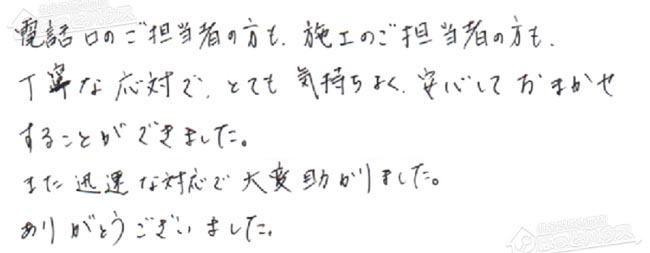 電話口のご担当者の方も、施工のご担当者の方も、
丁寧な応対で、とても気持ちよく、安心しておまかせ
することができました。
また迅速な対応で大変助かりました。
ありがとうございました。